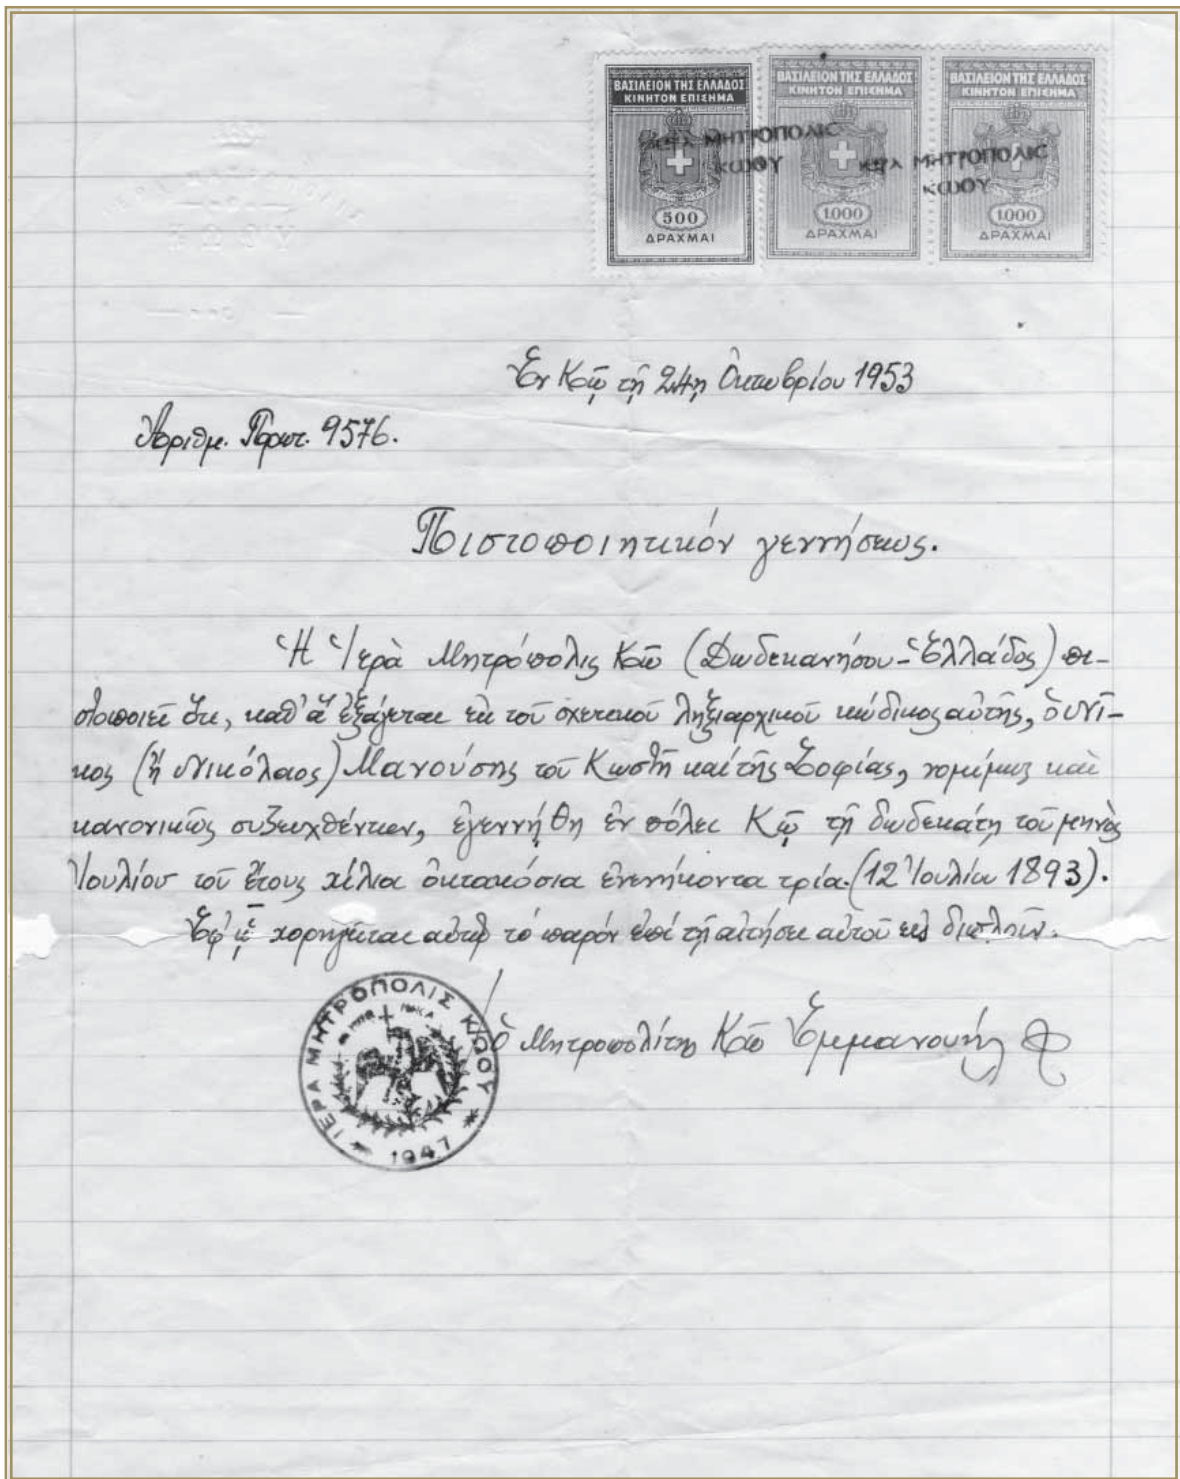 ΒΑΣΙΛΕΙΟΝ ΤΗΣ ΕΛΛΑΔΟΣ ΒΑΣΙΛΕΙΟΝ ΤΗΣ ΕΛΛΑΔΟΣ ΒΑΣΙΛΕΙΟΝ ΤΗΣ ΕΛΛΑΔΟΣ
ΚΙΝΗΤΟΝ ΕΠΙΣΗΜΑ ΚΙΝΗΤΟΝ ΕΠΙΣΗΜΑ ΚΙΝΗΤΟΝ ΕΠΙΣΗΜΑ
ΙΕΡΑ ΜΗΤΡΟΠΟΛΙΣ ΙΕΡΑ ΜΗΤΡΟΠΟΛΙΣ
ΚΩΟΥ ΚΩΟΥ
500 1000 1000
ΔΡΑΧΜΑΙ ΔΡΑΧΜΑΙ ΔΡΑΧΜΑΙ
Ἐν Κῷ τῇ 24ῃ Ὀκτωβρίου 1953
Ἀριθμ. Πρωτ. 9576.
Πιστοποιητικόν γεννήσεως.
Ἡ Ἱερὰ Μητρόπολις Κῶ (Δωδεκανήσου-Ἑλλάδος) πι-
στοποιεῖ ὅτι, καθ' ἃ ἐξάγεται ἐκ τοῦ σχετικοῦ ληξιαρχικοῦ κώδικος αὐτῆς, ὁ Νῖ-
κος (ἢ Νικόλαος) Μανούσης τοῦ Κωστῆ καί τῆς Σοφίας, νομίμως καὶ
κανονικῶς συζευχθέντων, ἐγεννήθη ἐν πόλει Κῷ τῇ δωδεκάτῃ τοῦ μηνὸς
Ἰουλίου τοῦ ἔτους χίλια ὀκτακόσια ἐνενήκοντα τρία. (12 Ἰουλίου 1893).
Ἐφ' ᾧ χορηγεῖται αὐτῷ τό παρόν ἐπί τῇ αἰτήσει αὐτοῦ εἰς διπλοῦν.
Ὁ Μητροπολίτης Κῶ Ἐμμανουήλ
ΙΕΡΑ ΜΗΤΡΟΠΟΛΙΣ ΚΩΟΥ
1947